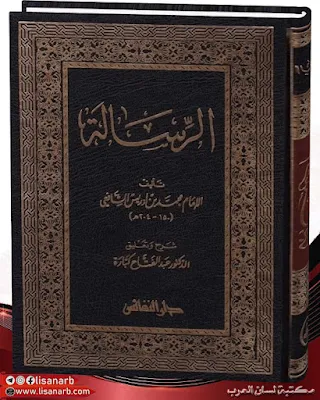 الرسالة
تأليف
الإمام محمد بن إدريس الشافعي
(١٥٠ - ٢٠٤ هـ)
شرح وتعليق
الدكتور عبد الفتاح كبارة
دار النفائس
lisanarb
www.lisanarb.com
مكتبة لسان العرب